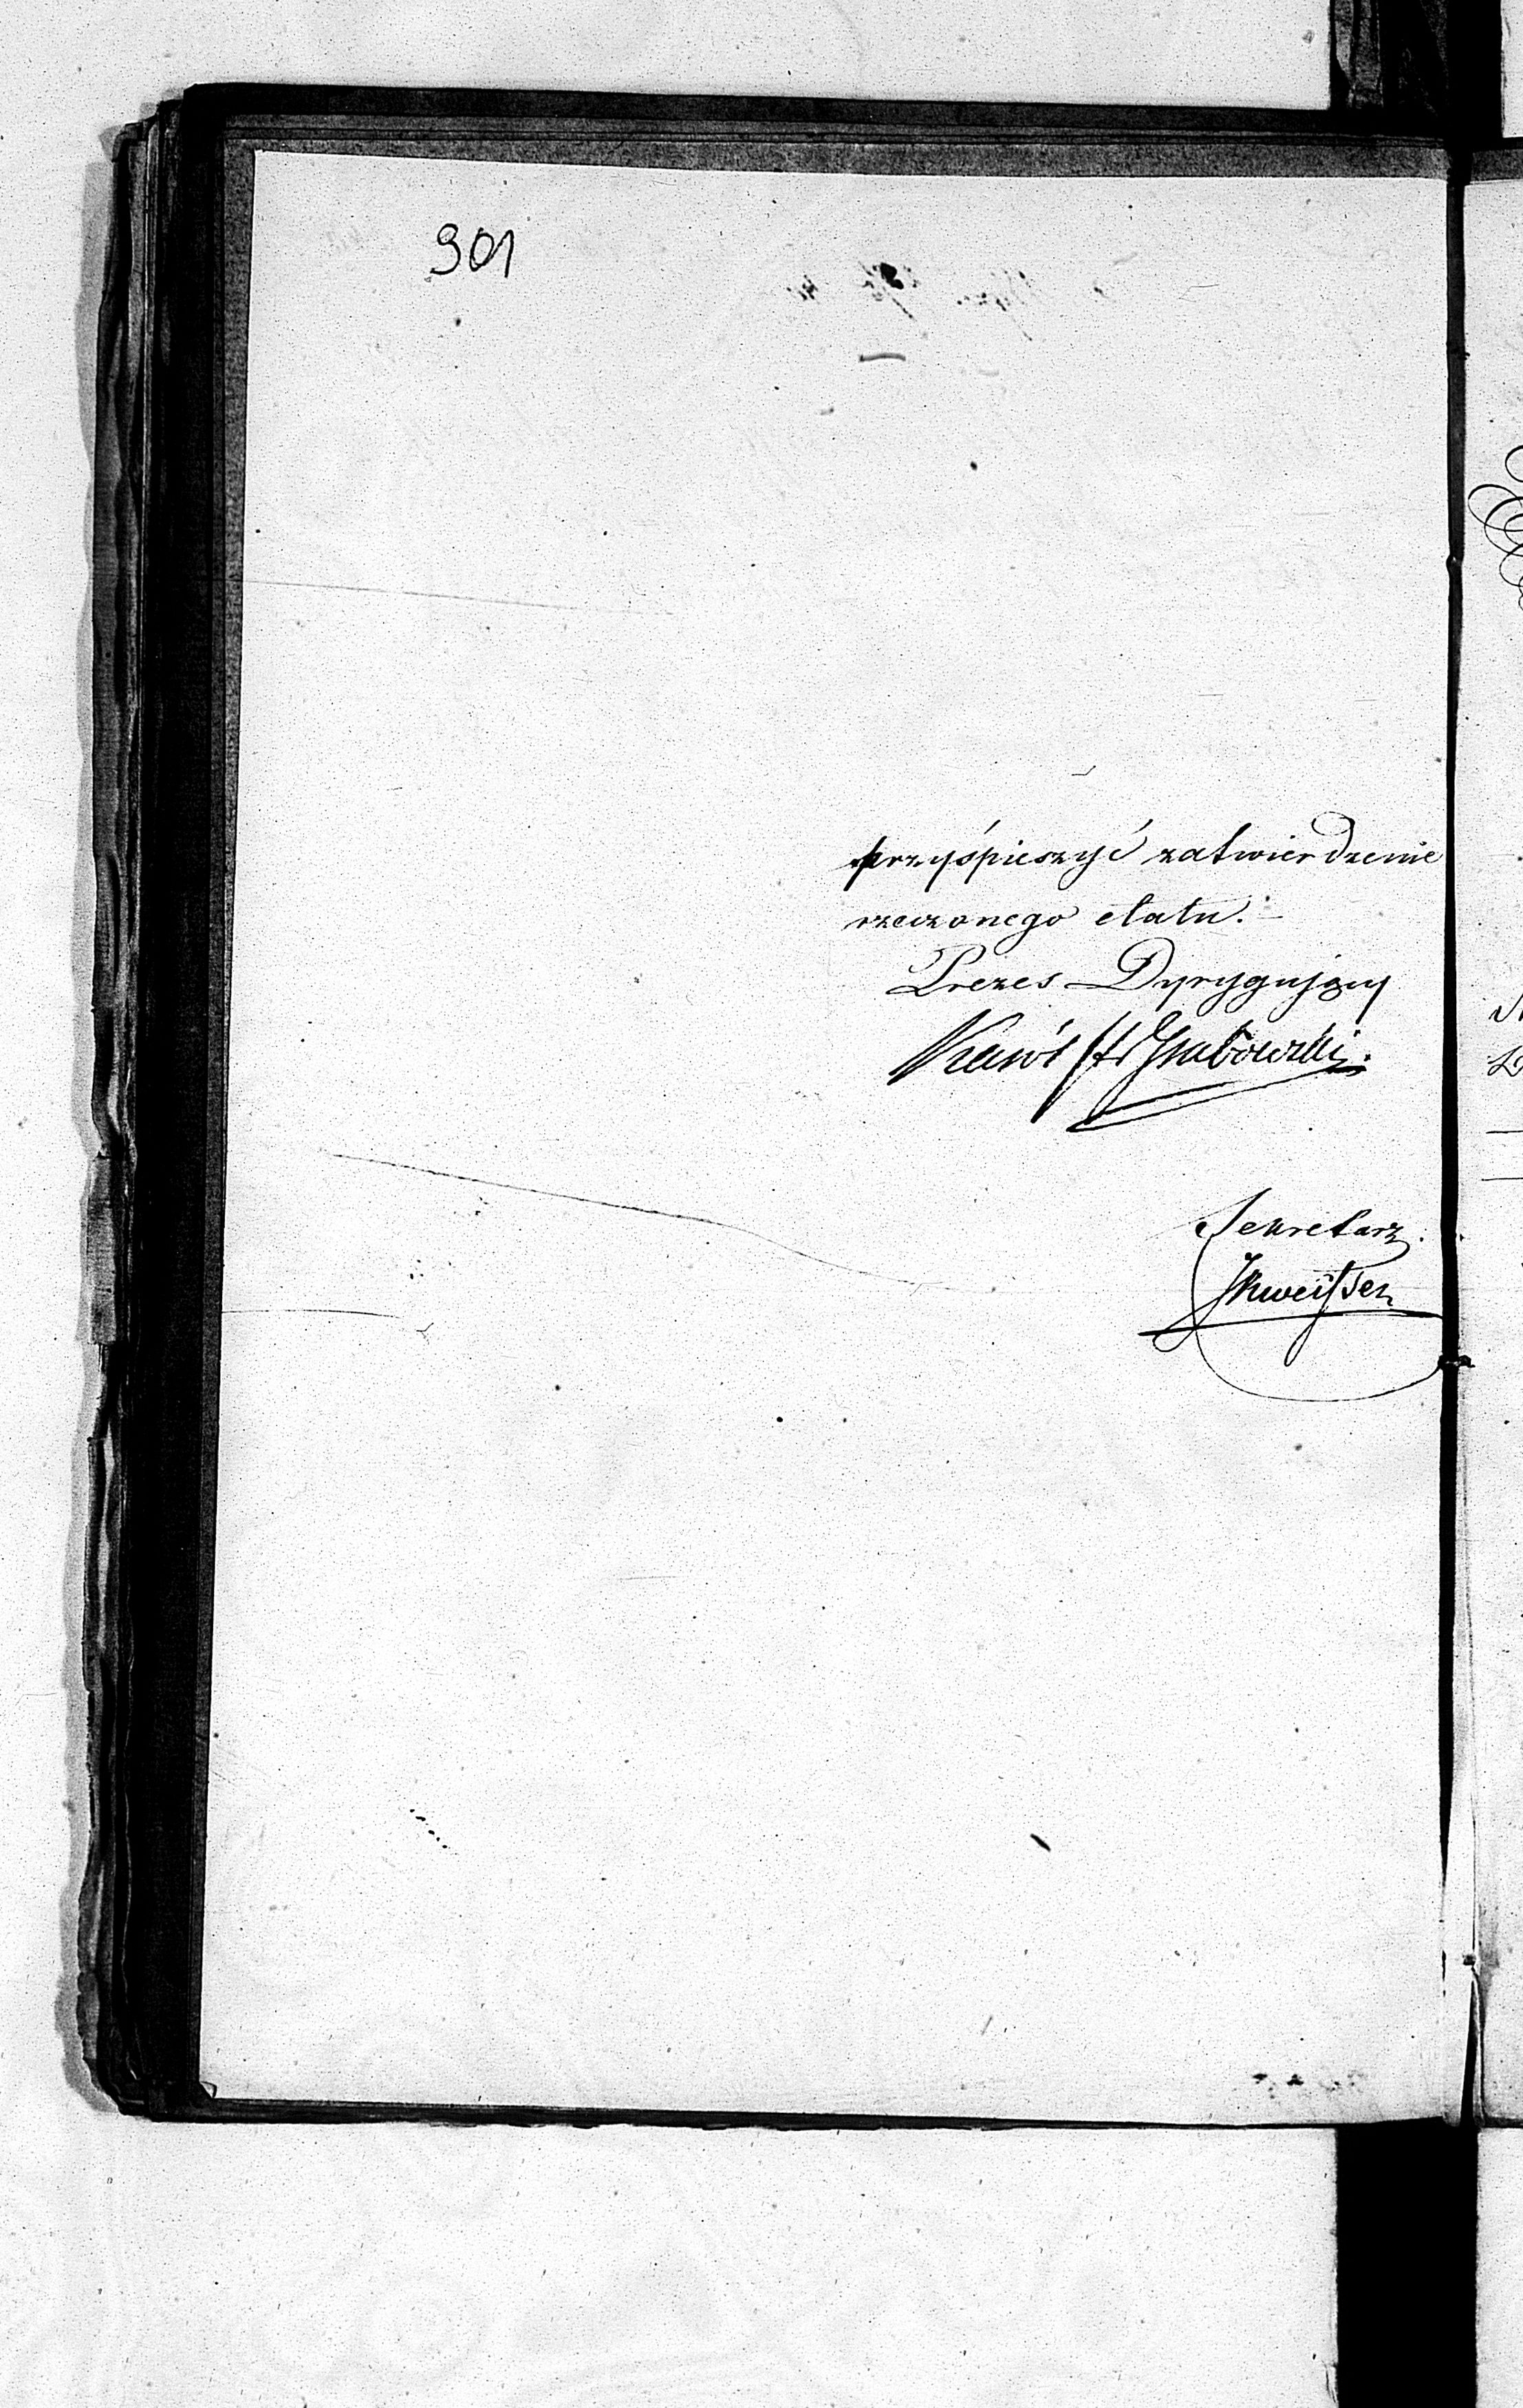 901
przyśpieszyć zatwierdzenie
rzeczonego etatu.
Prezes Dyrygujący
Grabowski.
Sekretarz